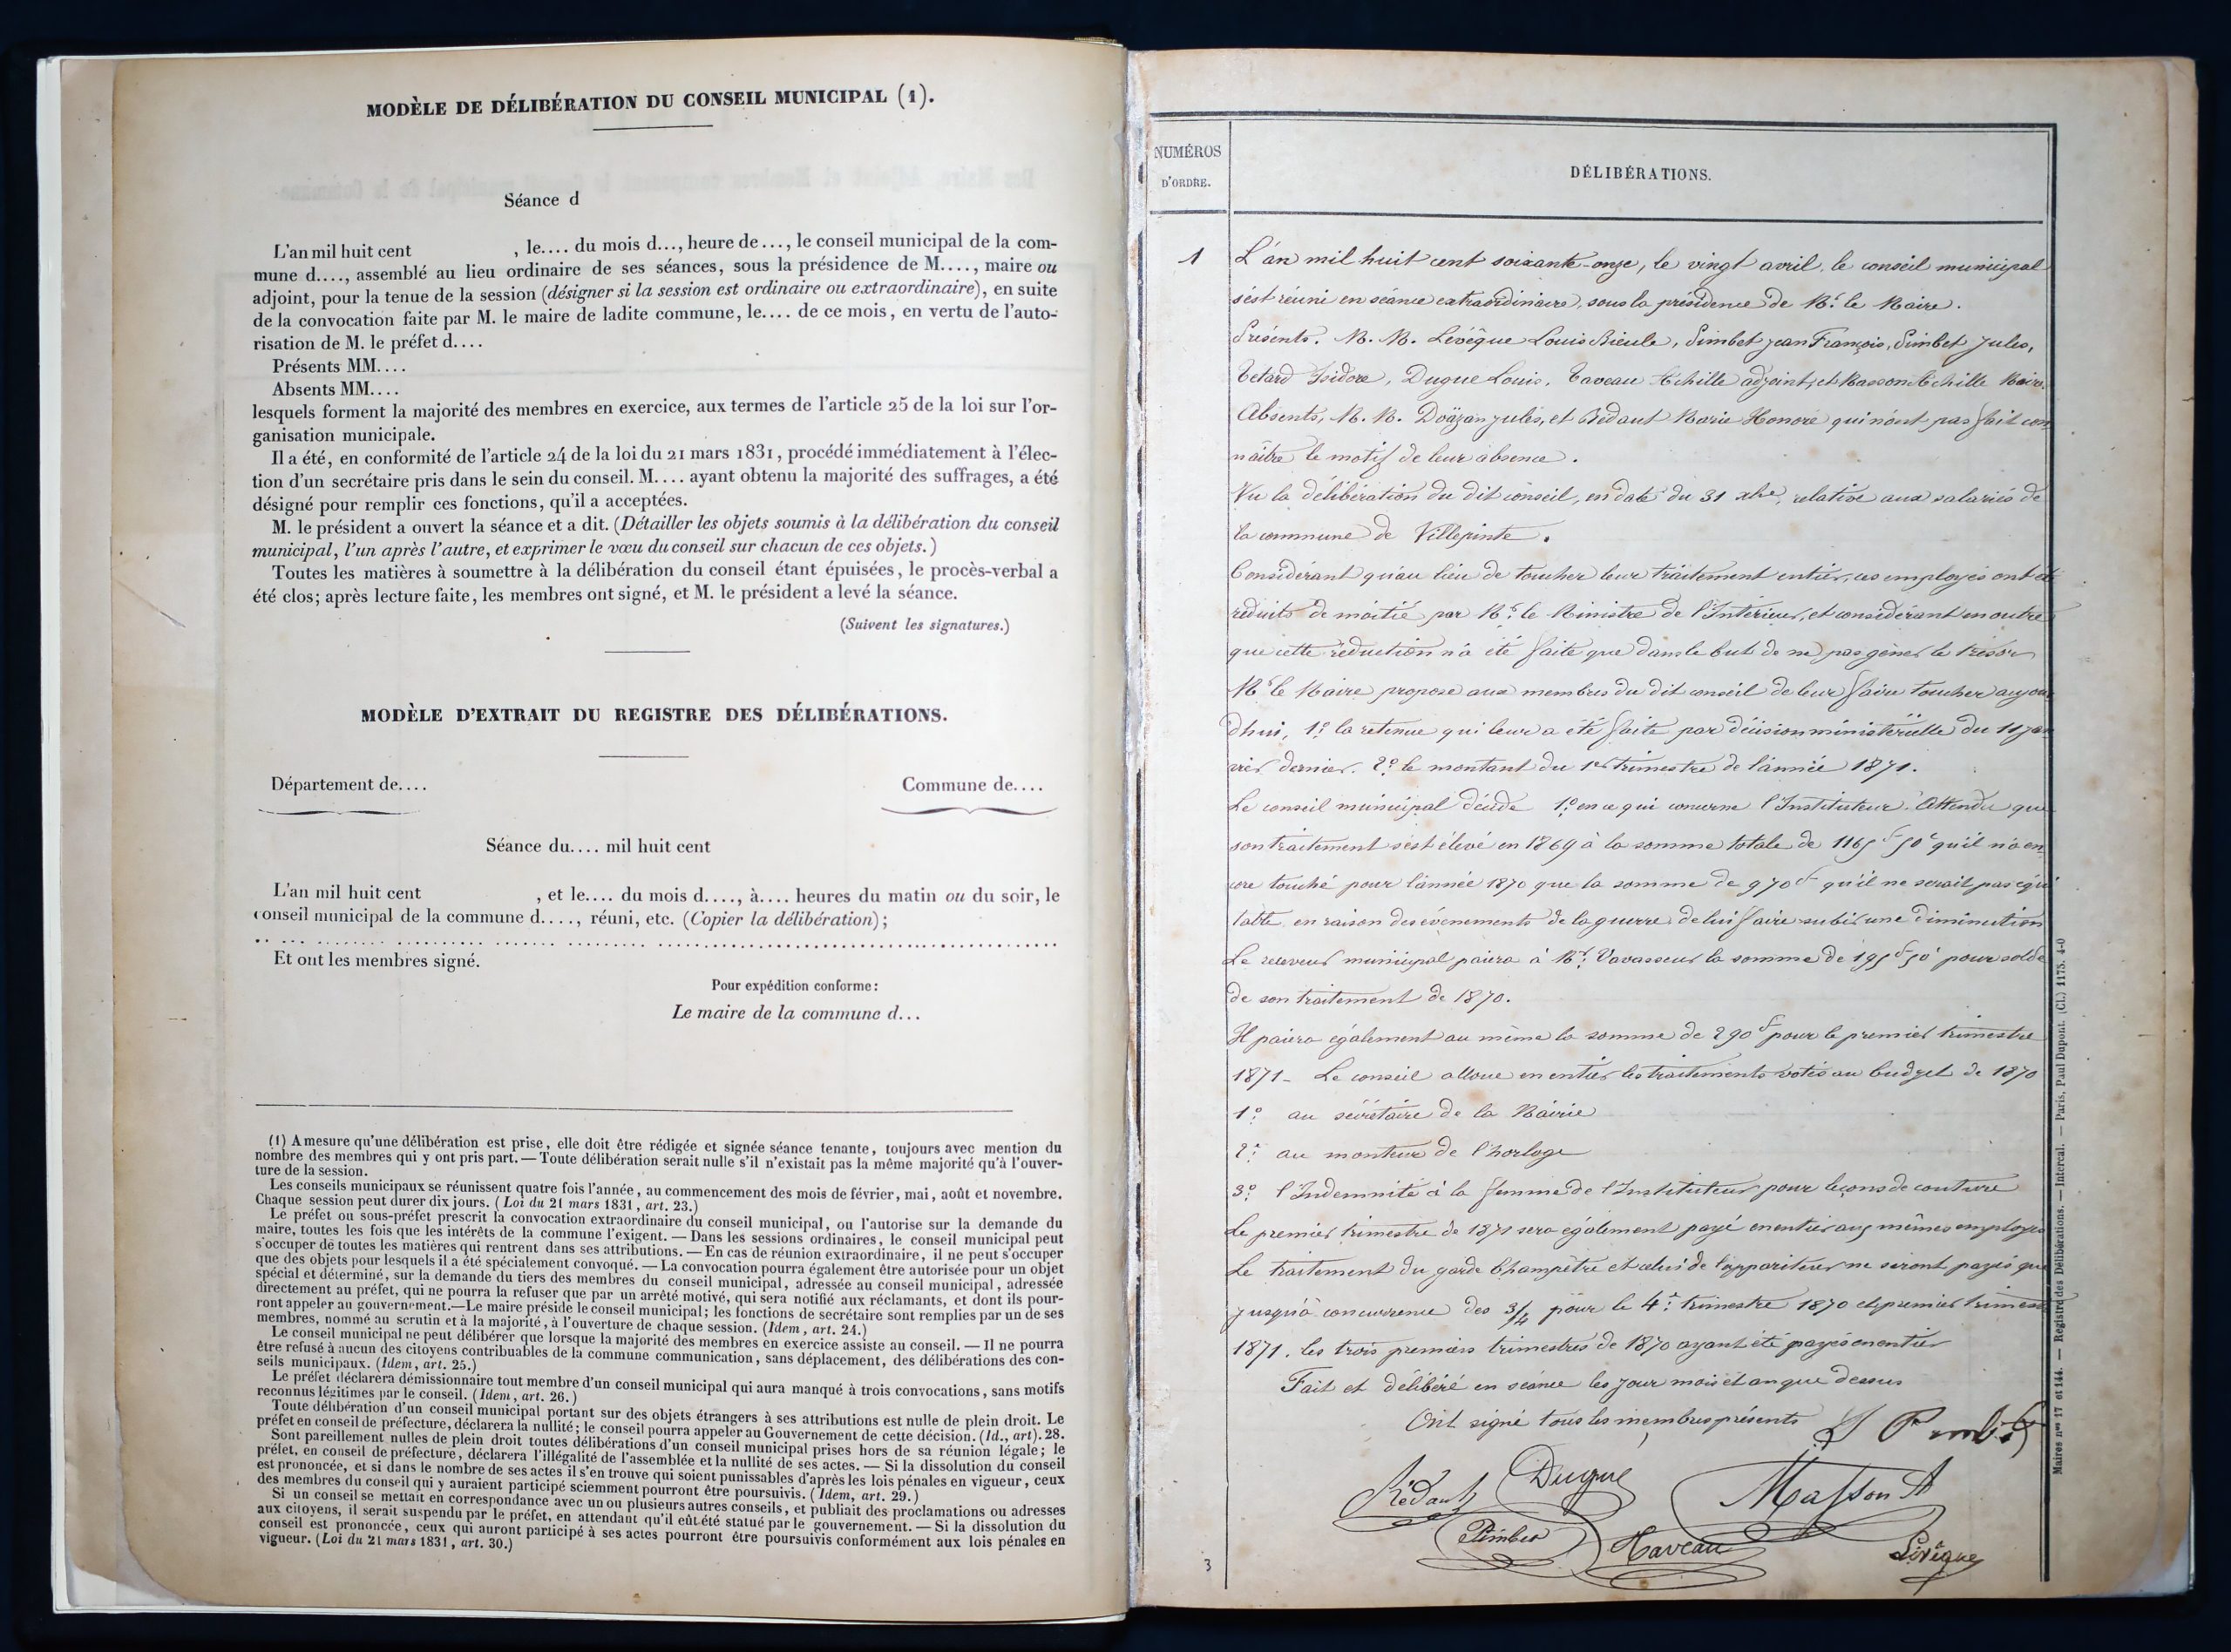 MODÈLE DE DÉLIBÉRATION DU CONSEIL MUNICIPAL (1).
Séance d
L'an mil huit cent , le.... du mois d..., heure de..., le conseil municipal de la com-
mune d...., assemblé au lieu ordinaire de ses séances, sous la présidence de M...., maire ou
adjoint, pour la tenue de la session (désigner si la session est ordinaire ou extraordinaire), en suite
de la convocation faite par M. le maire de ladite commune, le.... de ce mois, en vertu de l'auto-
risation de M. le préfet d....
Présents MM....
Absents MM....
lesquels forment la majorité des membres en exercice, aux termes de l'article 25 de la loi sur l'or-
ganisation municipale.
Il a été, en conformité de l'article 24 de la loi du 21 mars 1831, procédé immédiatement à l'élec-
tion d'un secrétaire pris dans le sein du conseil. M.... ayant obtenu la majorité des suffrages, a été
désigné pour remplir ces fonctions, qu'il a acceptées.
M. le président a ouvert la séance et a dit. (Détailler les objets soumis à la délibération du conseil
municipal, l'un après l'autre, et exprimer le vœu du conseil sur chacun de ces objets.)
Toutes les matières à soumettre à la délibération du conseil étant épuisées, le procès-verbal a
été clos; après lecture faite, les membres ont signé, et M. le président a levé la séance.
(Suivent les signatures.)
MODÈLE D'EXTRAIT DU REGISTRE DES DÉLIBÉRATIONS.
Département de.... Commune de....
Séance du.... mil huit cent
L'an mil huit cent , et le.... du mois d...., à.... heures du matin ou du soir, le
conseil municipal de la commune d...., réuni, etc. (Copier la délibération);
Et ont les membres signé.
Pour expédition conforme:
Le maire de la commune d...
(1) A mesure qu'une délibération est prise, elle doit être rédigée et signée séance tenante, toujours avec mention du
nombre des membres qui y ont pris part. — Toute délibération serait nulle s'il n'existait pas la même majorité qu'à l'ouver-
ture de la session.
Les conseils municipaux se réunissent quatre fois l'année, au commencement des mois de février, mai, août et novembre.
Chaque session peut durer dix jours. (Loi du 21 mars 1831, art. 23.)
Le préfet ou sous-préfet prescrit la convocation extraordinaire du conseil municipal, ou l'autorise sur la demande du
maire, toutes les fois que les intérêts de la commune l'exigent. — Dans les sessions ordinaires, le conseil municipal peut
s'occuper de toutes les matières qui rentrent dans ses attributions. — En cas de réunion extraordinaire, il ne peut s'occuper
que des objets pour lesquels il a été spécialement convoqué. — La convocation pourra également être autorisée pour un objet
spécial et déterminé, sur la demande du tiers des membres du conseil municipal, adressée au conseil municipal, adressée
directement au préfet, qui ne pourra la refuser que par un arrêté motivé, qui sera notifié aux réclamants, et dont ils pour-
ront appeler au gouvernement.—Le maire préside le conseil municipal; les fonctions de secrétaire sont remplies par un de ses
membres, nommé au scrutin et à la majorité, à l'ouverture de chaque session. (Idem, art. 24.)
Le conseil municipal ne peut délibérer que lorsque la majorité des membres en exercice assiste au conseil. — Il ne pourra
être refusé à aucun des citoyens contribuables de la commune communication, sans déplacement, des délibérations des con-
seils municipaux. (Idem, art. 25.)
Le préfet déclarera démissionnaire tout membre d'un conseil municipal qui aura manqué à trois convocations, sans motifs
reconnus légitimes par le conseil. (Idem, art. 26.)
Toute délibération d'un conseil municipal portant sur des objets étrangers à ses attributions est nulle de plein droit. Le
préfet en conseil de préfecture, déclarera la nullité; le conseil pourra appeler au Gouvernement de cette décision. (Id., art). 28.
Sont pareillement nulles de plein droit toutes délibérations d'un conseil municipal prises hors de sa réunion légale; le
préfet, en conseil de préfecture, déclarera l'illégalité de l'assemblée et la nullité de ses actes. — Si la dissolution du conseil
est prononcée, et si dans le nombre de ses actes il s'en trouve qui soient punissables d'après les lois pénales en vigueur, ceux
des membres du conseil qui y auraient participé sciemment pourront être poursuivis. (Idem, art. 29.)
Si un conseil se mettait en correspondance avec un ou plusieurs autres conseils, et publiait des proclamations ou adresses
aux citoyens, il serait suspendu par le préfet, en attendant qu'il eût été statué par le gouvernement. — Si la dissolution du
conseil est prononcée, ceux qui auront participé à ses actes pourront être poursuivis conformément aux lois pénales en
vigueur. (Loi du 21 mars 1831, art. 30.)
NUMÉROS
D'ORDRE.
DÉLIBÉRATIONS.
1 L'an mil huit cent soixante-onze, le vingt avril, le conseil municipal
s'est réuni en séance extraordinaire, sous la présidence de Mr. le Maire.
Présents. M. M. Levêque Louis Bieule, Pimbet Jean François, Pimbet Jules,
Tetard Isidore, Dugue Louis, Taveau Achille adjoint, et Masson Achille Maire.
Absents, M. M. Doäzan Jules, et Bédaut Marie Honoré qui n'ont pas fait con
naître le motif de leur absence.
Vu la délibération du dit conseil, en date du 31 xbre, relative aux salariés de
la commune de Villepinte.
Considérant qu'au lieu de toucher leur traitement entier, ces employés ont été
réduits de moitié par Mr. le Ministre de l'Intérieur, et considérant en outre
que cette réduction n'a été faite que dans le but de ne pas gêner le trésor
Mr le Maire propose aux membres du dit conseil de leur faire toucher aujour
d'hui, 1º. la retenue qui leur a été faite par décision ministérielle du 11 jan
vier dernier. 2º. le montant du 1er trimestre de l'année 1871.
Le conseil municipal décide 1º. en ce qui concerne l'Instituteur. Attendu que
son traitement s'est élevé en 1869 à la somme totale de 1165f 50c qu'il n'a en
core touché pour l'année 1870 que la somme de 970f qu'il ne serait pas équi
table en raison des événements de la guerre de lui faire subir une diminution
Le receveur municipal paiera à Mr. Vavasseur la somme de 195f 50c pour solde
de son traitement de 1870.
Il paiera également au même la somme de 290f pour le premier trimestre
1871 - Le conseil alloue en entier les traitements votés au budget de 1870
1º. au secrétaire de la Mairie
2º. au monteur de l'horloge
3º. l'Indemnité à la femme de l'Instituteur pour leçons de couture
Le premier trimestre de 1871 sera également payé en entier aux mêmes employés
Le traitement du garde Champêtre et celui de l'appariteur ne seront payés que
jusqu'à concurrence des 3/4 pour le 4e. trimestre 1870 et premier trimest
1871. les trois premiers trimestres de 1870 ayant été payés en entier
Fait et délibéré en séance les jour mois et an que dessus
Ont signé tous les membres présents
J Pimbet
Bédaut Dugue Masson A
Pimbet Taveau Levêque
3
Maires nos 17 et 144. — Registre des Délibérations. — Intercal. — Paris, Paul Dupont. (Cl.) 1175. 4-0